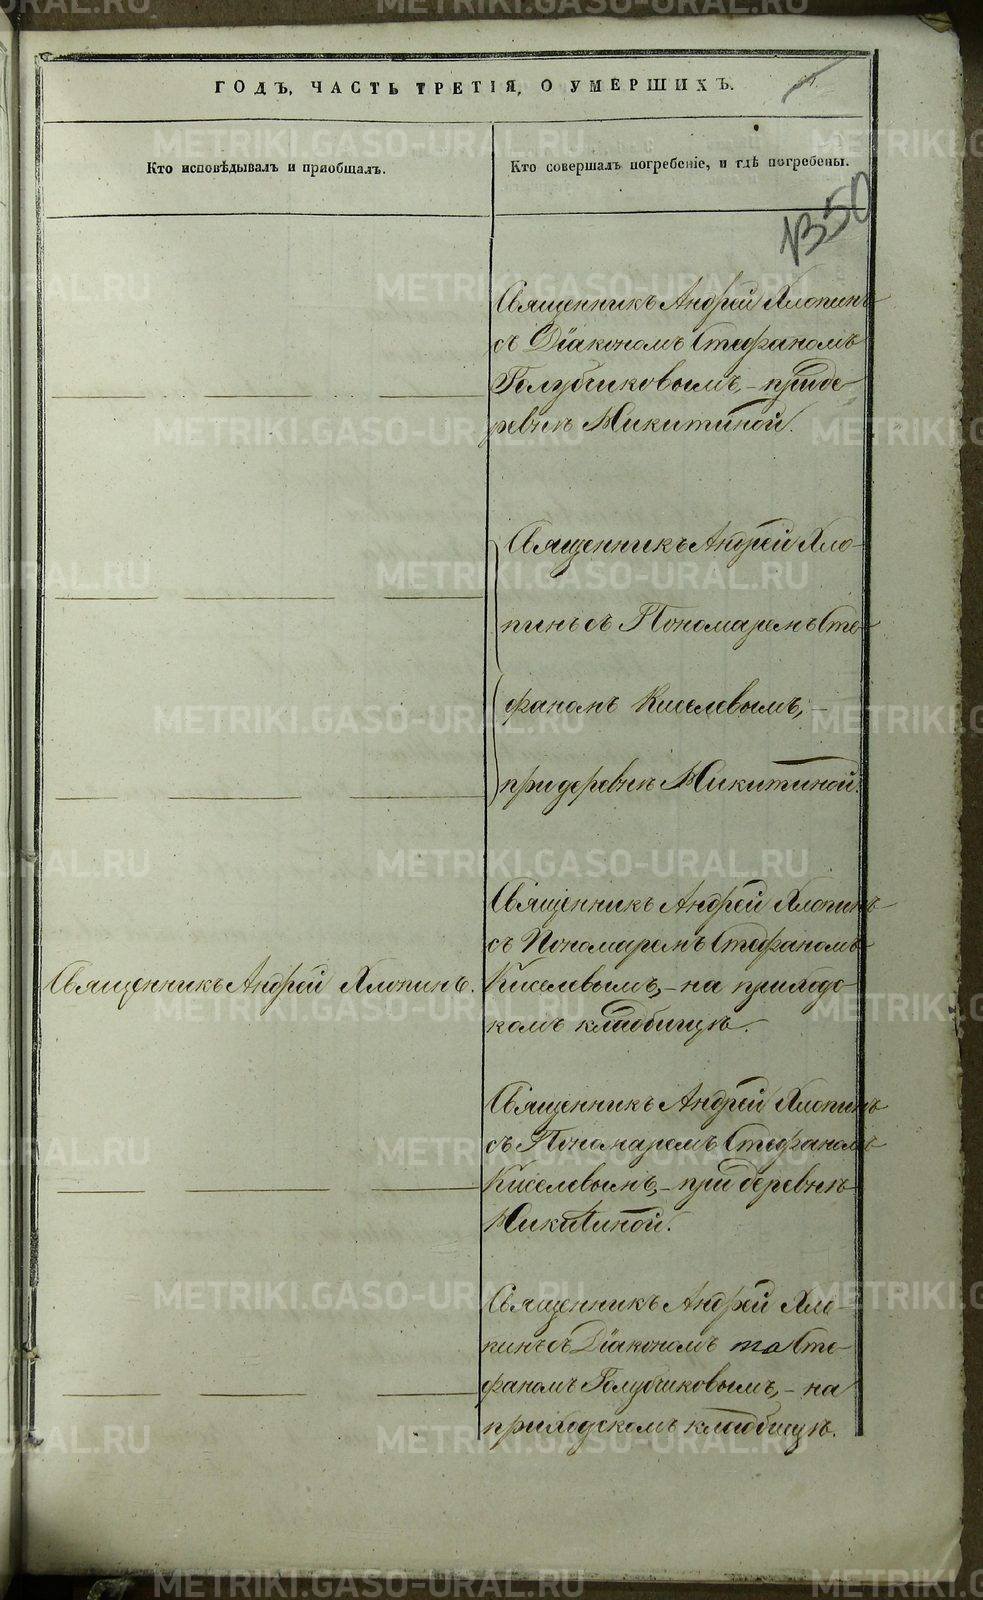 ГОДЪ, ЧАСТЬ ТРЕТІЯ, О УМЕРШИХЪ.
Кто исповѣдывалъ и пріобщалъ.
Кто совершалъ погребеніе, и гдѣ погребены.
1350
Священникъ Андрей Хлопинъ
съ Діакономъ Стефаномъ
Голубчиковымъ, – при де-
ревнѣ Никитиной.
Священникъ Андрей Хло-
пинъ съ Пономаремъ Сте-
фаномъ Киселевымъ, –
при деревнѣ Никитиной.
Священникъ Андрей Хлопинъ.
Священникъ Андрей Хлопинъ
съ Пономаремъ Стефаномъ
Киселевымъ, – на приходс-
комъ кладбищѣ.
Священникъ Андрей Хлопинъ
съ Пономаремъ Стефаномъ
Киселевымъ, – при деревнѣ
Никитиной.
Священникъ Андрей Хло-
пинъ съ Діакономъ Сте-
фаномъ Голубчиковымъ, – на
приходскомъ кладбищѣ.
METRIKI.GASO-URAL.RU